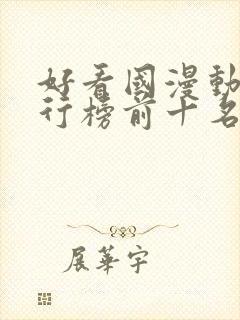 好看國漫動
行榜前十名
展華宇